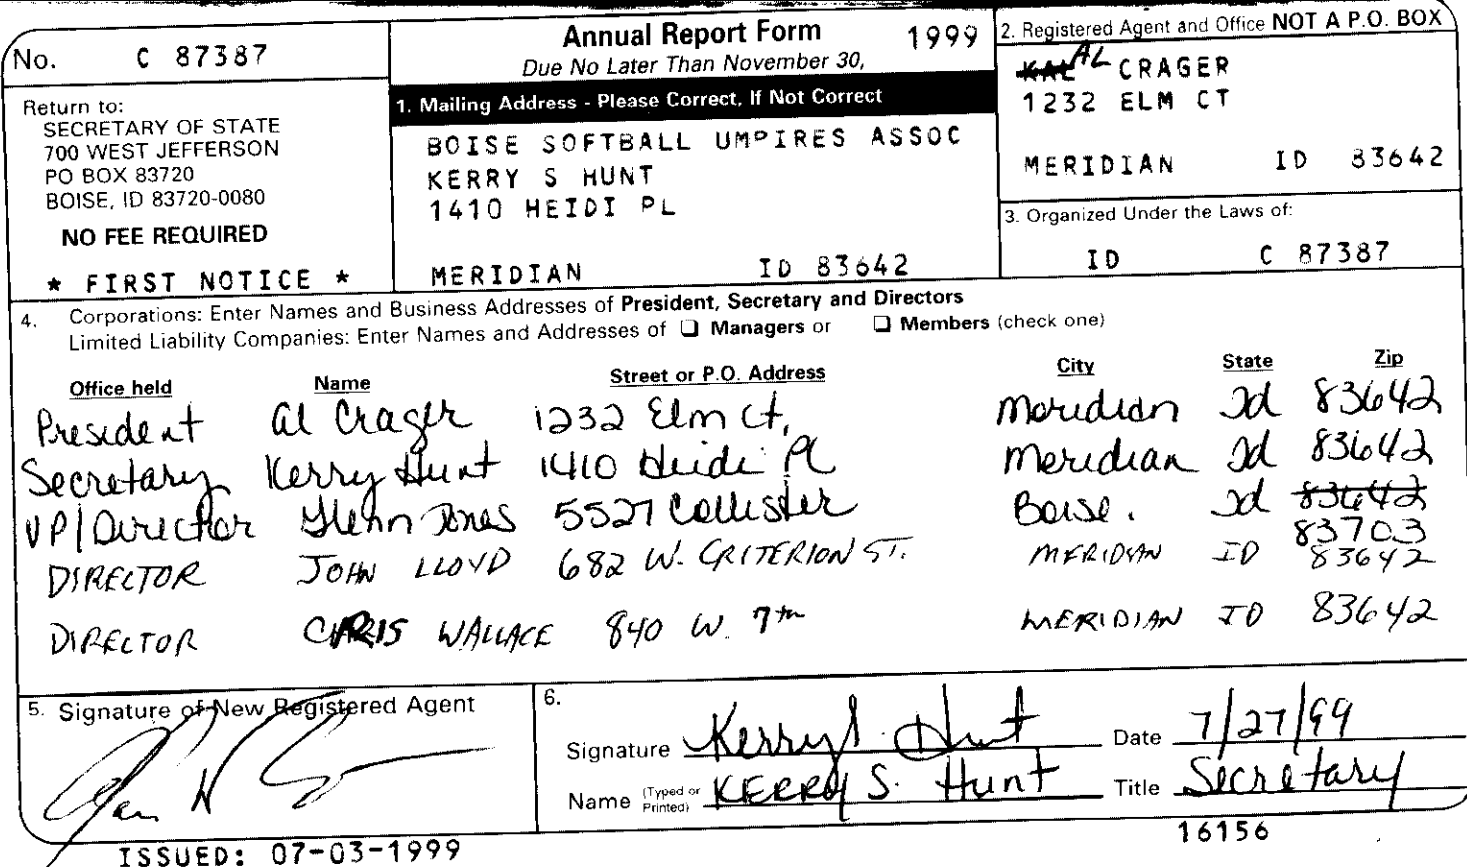 No. C 87387
Return to:
SECRETARY OF STATE
700 WEST JEFFERSON
PO BOX 83720
BOISE, ID 83720-0080
NO FEE REQUIRED
* FIRST NOTICE *
Annual Report Form 1999
Due No Later Than November 30,
1. Mailing Address - Please Correct, If Not Correct
BOISE SOFTBALL UMPIRES ASSOC
KERRY S HUNT
1410 HEIDI PL
MERIDIAN ID 83642
2. Registered Agent and Office NOT A P.O. BOX
KAL AL CRAGER
1232 ELM CT
MERIDIAN ID 83642
3. Organized Under the Laws of:
ID C 87387
4. Corporations: Enter Names and Business Addresses of President, Secretary and Directors
Limited Liability Companies: Enter Names and Addresses of ❑ Managers or ❑ Members (check one)
Office held Name Street or P.O. Address City State Zip
President Al Crager 1232 Elm Ct, Meridian Id 83642
Secretary Kerry Hunt 1410 Heidi Pl Meridian Id 83642
VP/Director Glenn Jones 5527 Collister Boise. Id 83642
83703
DIRECTOR JOHN LLOYD 682 W. CRITERION ST. MERIDIAN ID 83642
DIRECTOR CHRIS WALLACE 840 W. 7th MERIDIAN ID 83642
5. Signature of New Registered Agent
6.
Signature Kerry S. Hunt Date 7/27/99
Name (Typed or Printed) KERRY S. Hunt Title Secretary
ISSUED: 07-03-1999
16156